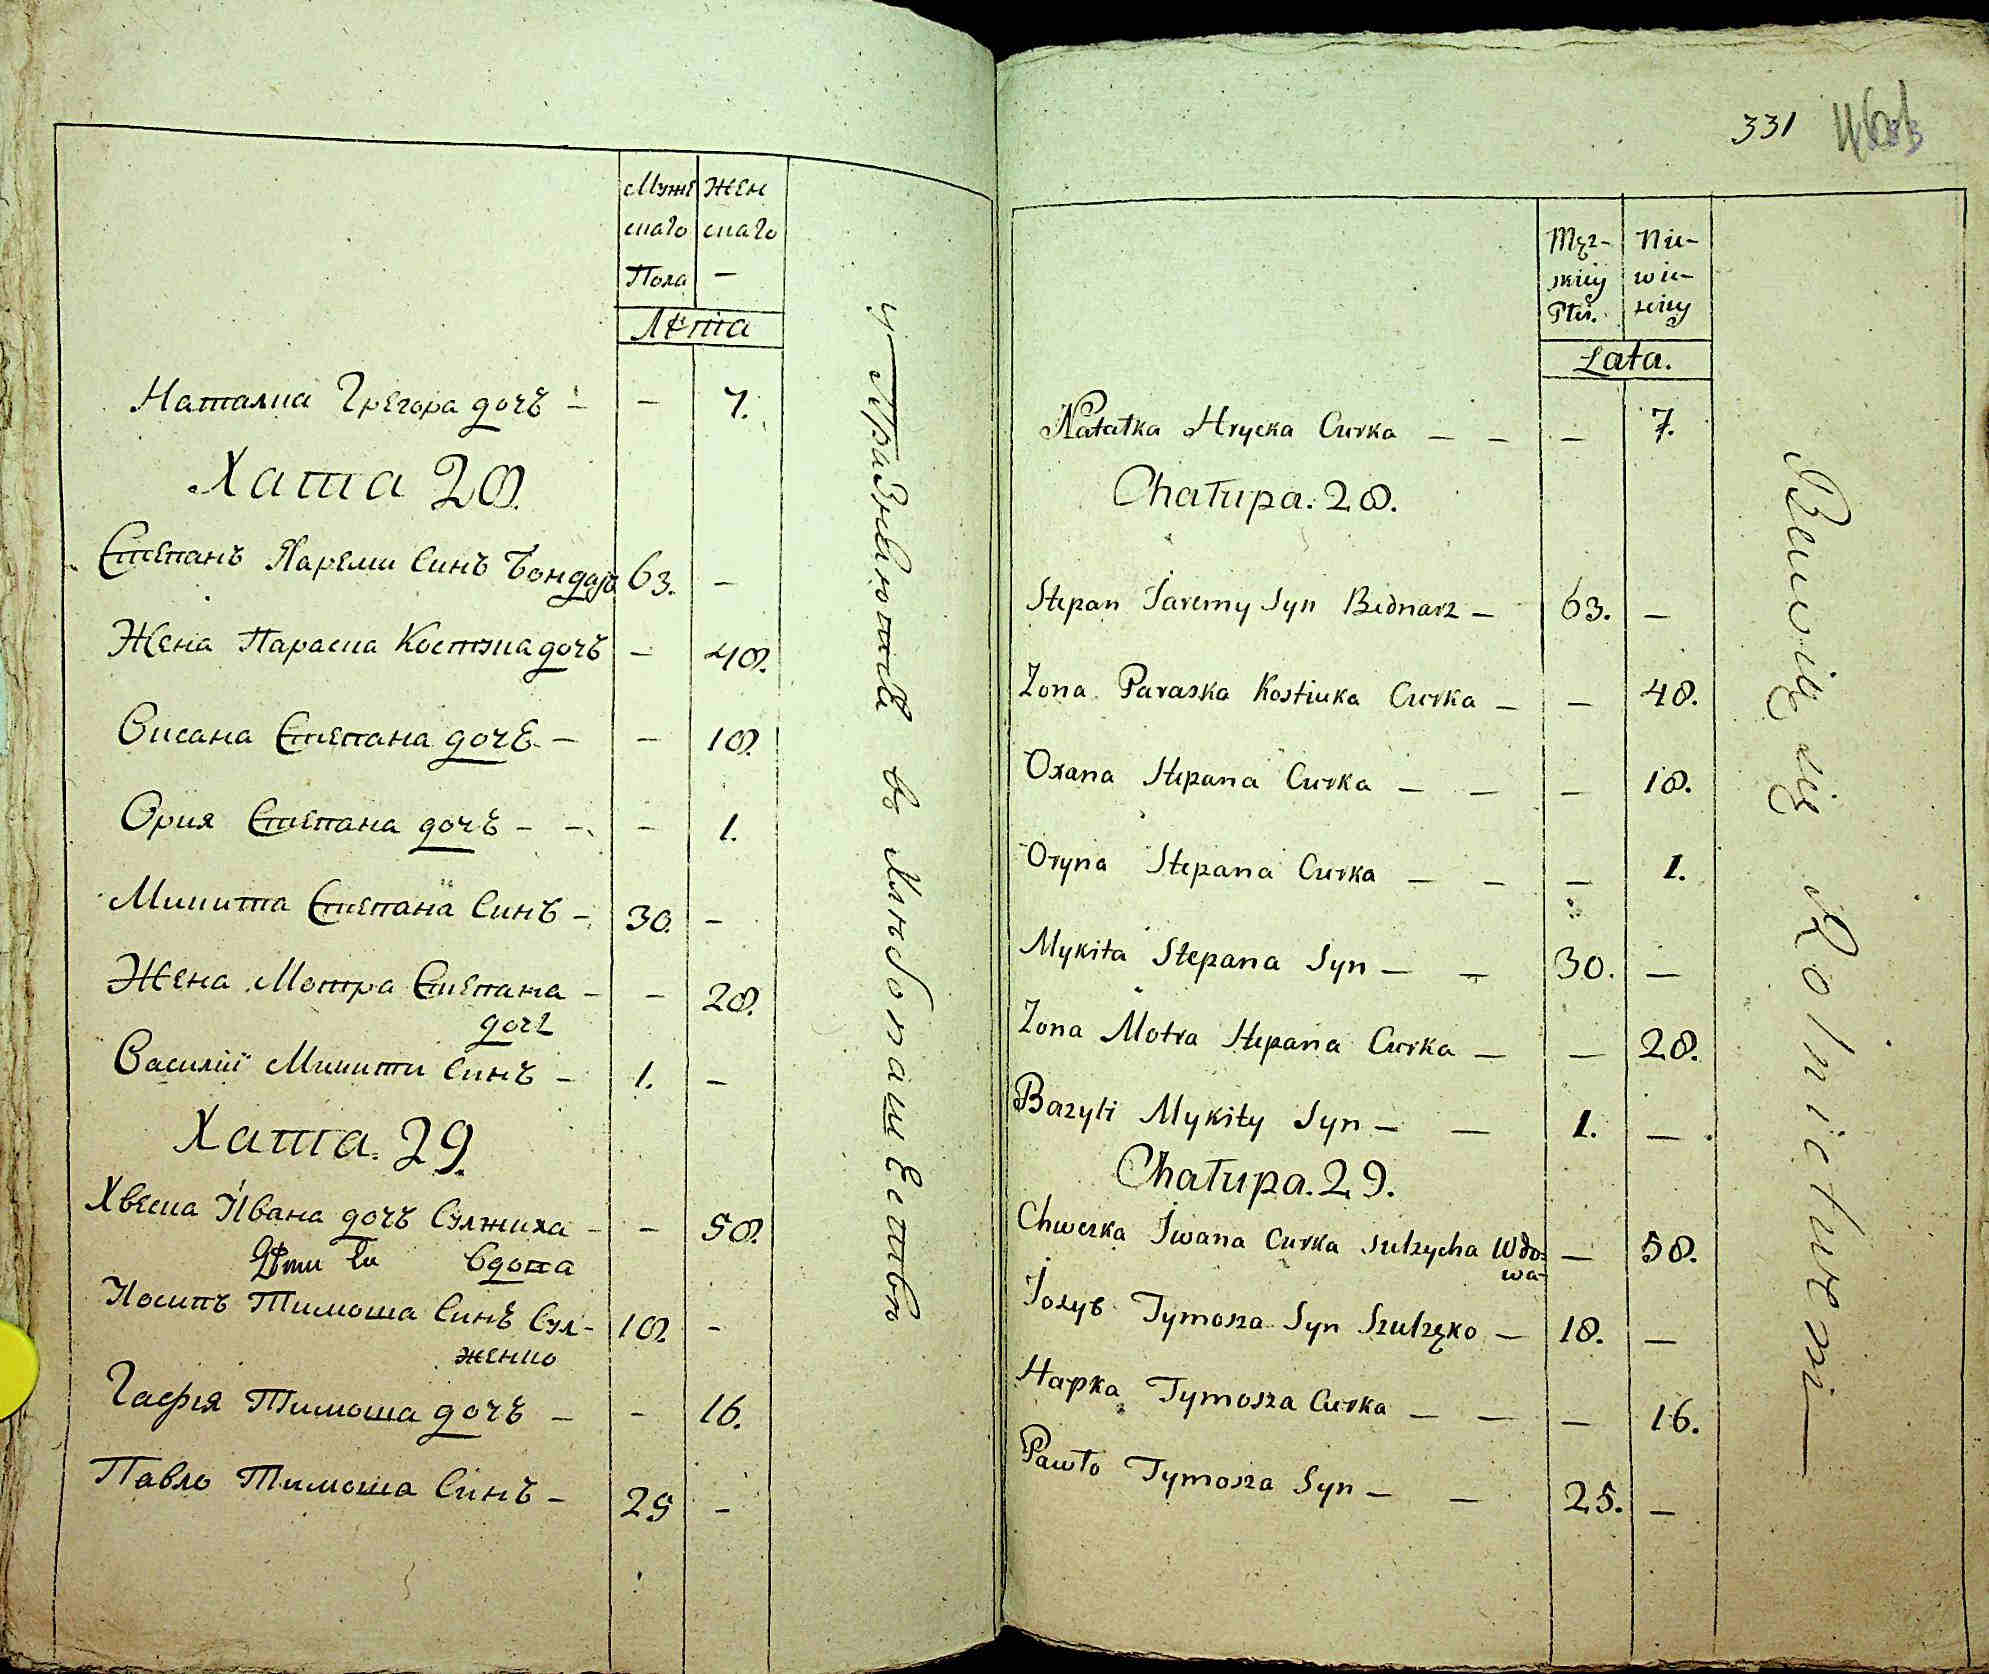 Муже Жен
скаго скаго
Пола —
Лѣта
Наталка Грегора дочъ — — 7.
Хата 28.
Степанъ Яреми Синъ Бондарь 63. —
Жена Параска Костюка дочъ — 48.
Оксана Степана дочъ — — 18.
Ория Степана дочъ — — — 1.
Микита Степана Синъ — 30. —
Жена Мотра Степана — — 28.
дочъ
Василій Микити Синъ — 1. —
Хата. 29.
Хвеска Ивана дочъ Сулжиха — — 58.
Дѣти Ея вдова
Йосипъ Тимоша Синъ Сул- 18. —
женко
Гафія Тимоша дочъ — — 16.
Павло Тимоша Синъ — 25 —
упражняются в Хлѣбопашествѣ
331
Męz- Nie-
skiey wie-
Płci. sciey
Lata.
Natałka Hrycka Curka — — — 7.
Chałupa. 28.
Stepan Jaremy Syn Bednarz — 63. —
Zona Paraska Kostiuka Curka — — 48.
Oxana Stepana Curka — — — 18.
Oryna Stepana Curka — — — 1.
Mykita Stepana Syn — — 30. —
Zona Motra Stepana Curka — — 28.
Bazyli Mykity Syn — — 1. —
Chałupa. 29.
Chweska Iwana Curka Sulzycha Wdo- — 58.
wa
Iozyb Tymosza Syn Szulzęko — 18. —
Hapka Tymosza Curka — — — 16.
Pawło Tymosza Syn — — 25. —
Bawią się Rolnictwem —